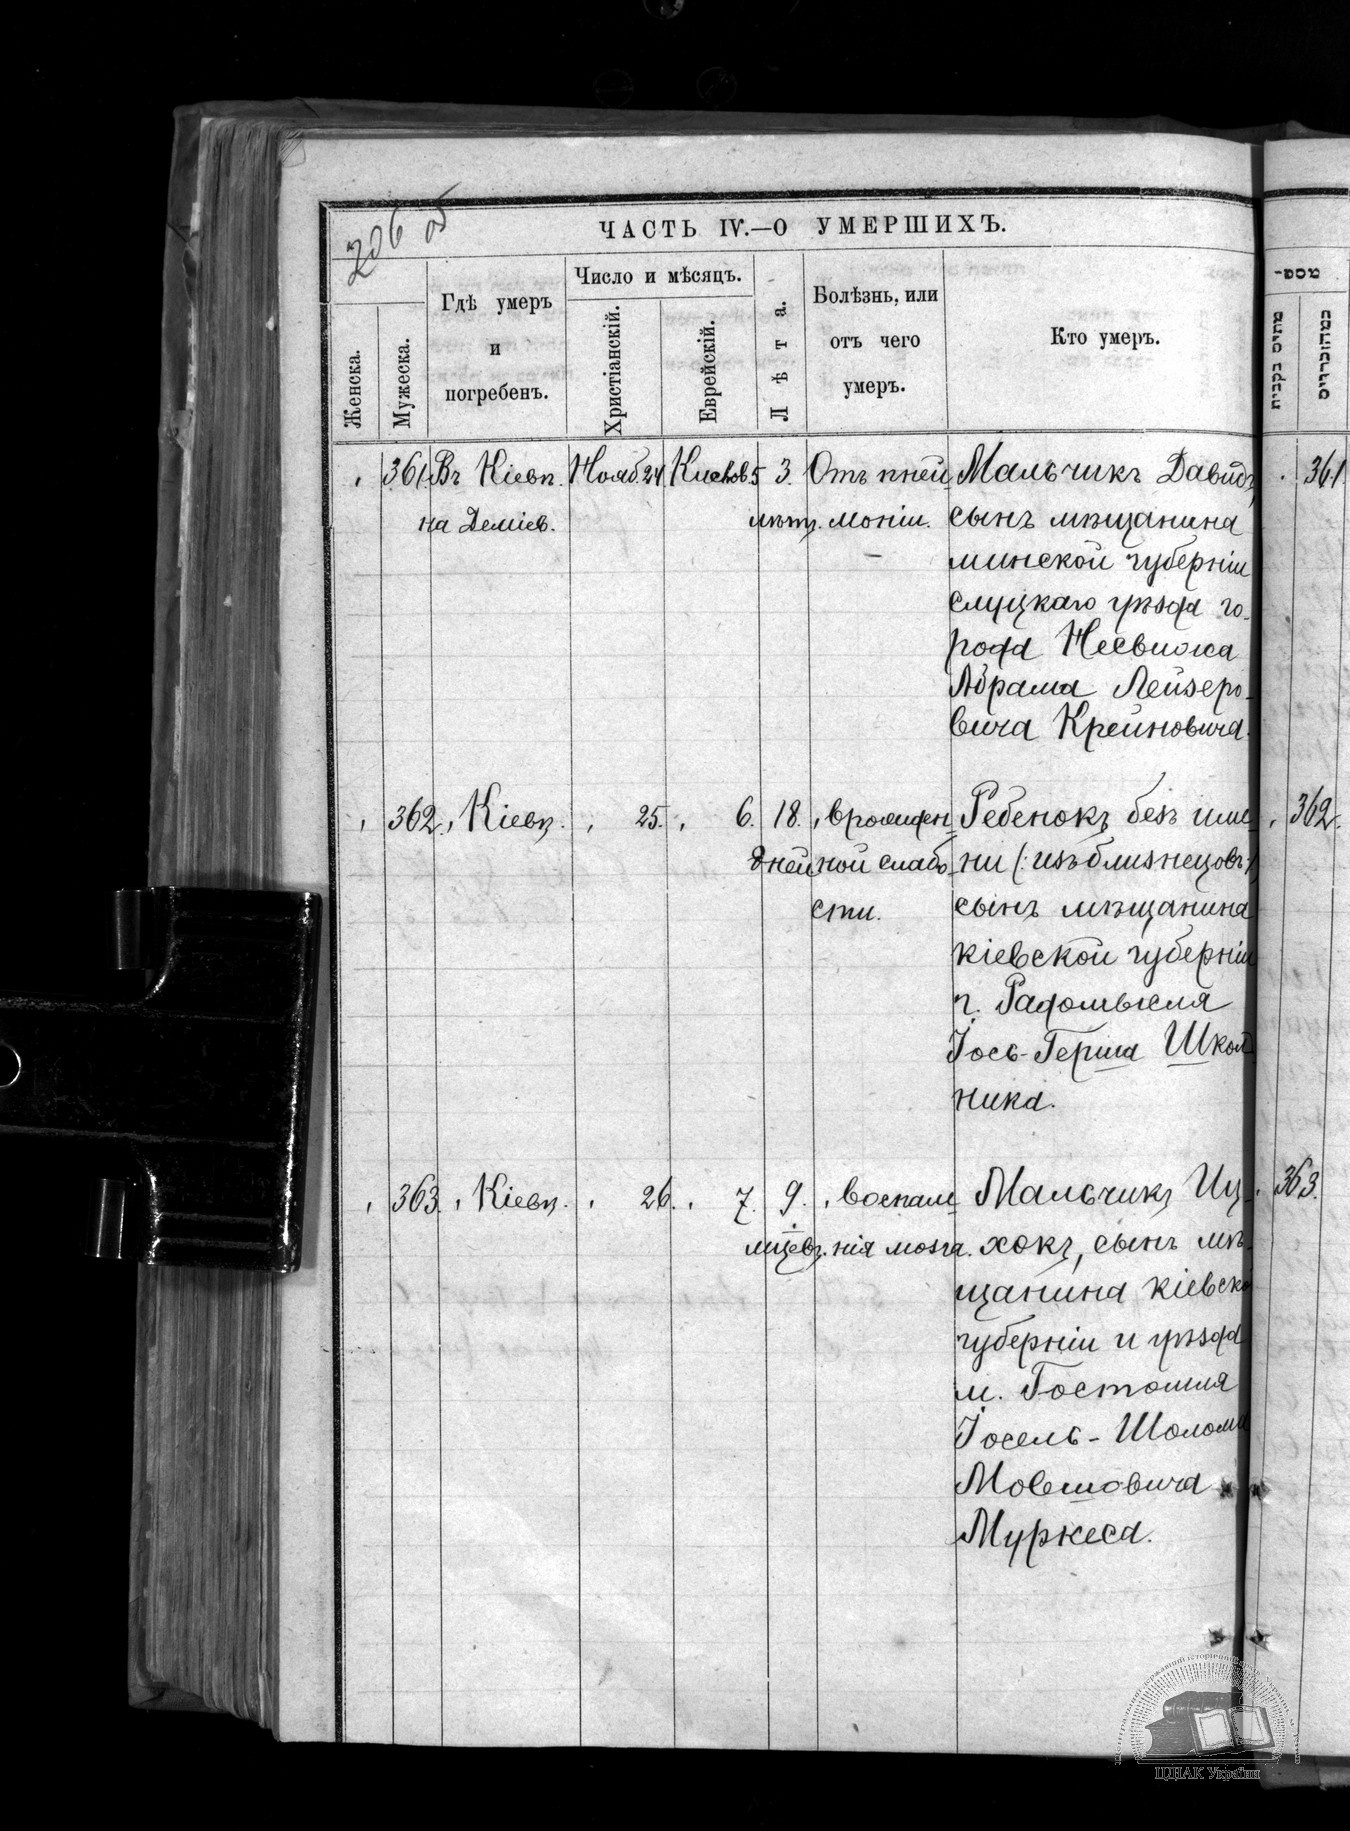 206 об
ЧАСТЬ IV.—О УМЕРШИХЪ.
Женска.
Мужеска.
Гдѣ умеръ
и
погребенъ.
Число и мѣсяцъ.
Христіанскій.
Еврейскій.
Лѣта.
Болѣзнь, или
отъ чего
умеръ.
Кто умеръ.
מספ-
361. Въ Кіевѣ. Нояб. 24. Кислев. 5 3. Отъ пней- Мальчикъ Давидъ, 361.
на Деміев. лѣтъ. моніи. сынъ мѣщанина
минской губерніи
слуцкаго уѣзда го-
рода Несвижа
Абрама Лейзеро-
вича Крейновича.
362. „ Кіевѣ. „ 25. „ 6. 18. „ врожден- Ребенокъ безъ име- 362.
дней ной слабо- ни (: изъ близнецовъ :)
сти. сынъ мѣщанина
кіевской губерніи
г. Радомысля
Іось-Герша Школь-
ника.
363. „ Кіевѣ. „ 26. „ 7. 9. „ воспале- Мальчикъ Иц- 363.
мѣсяцевъ. нія мозга. хокъ, сынъ мѣ-
щанина кіевской
губерніи и уѣзда
м. Гостомля
Іосель-Шолома
Мовшовича
Муркеса.
ЦДІАК України